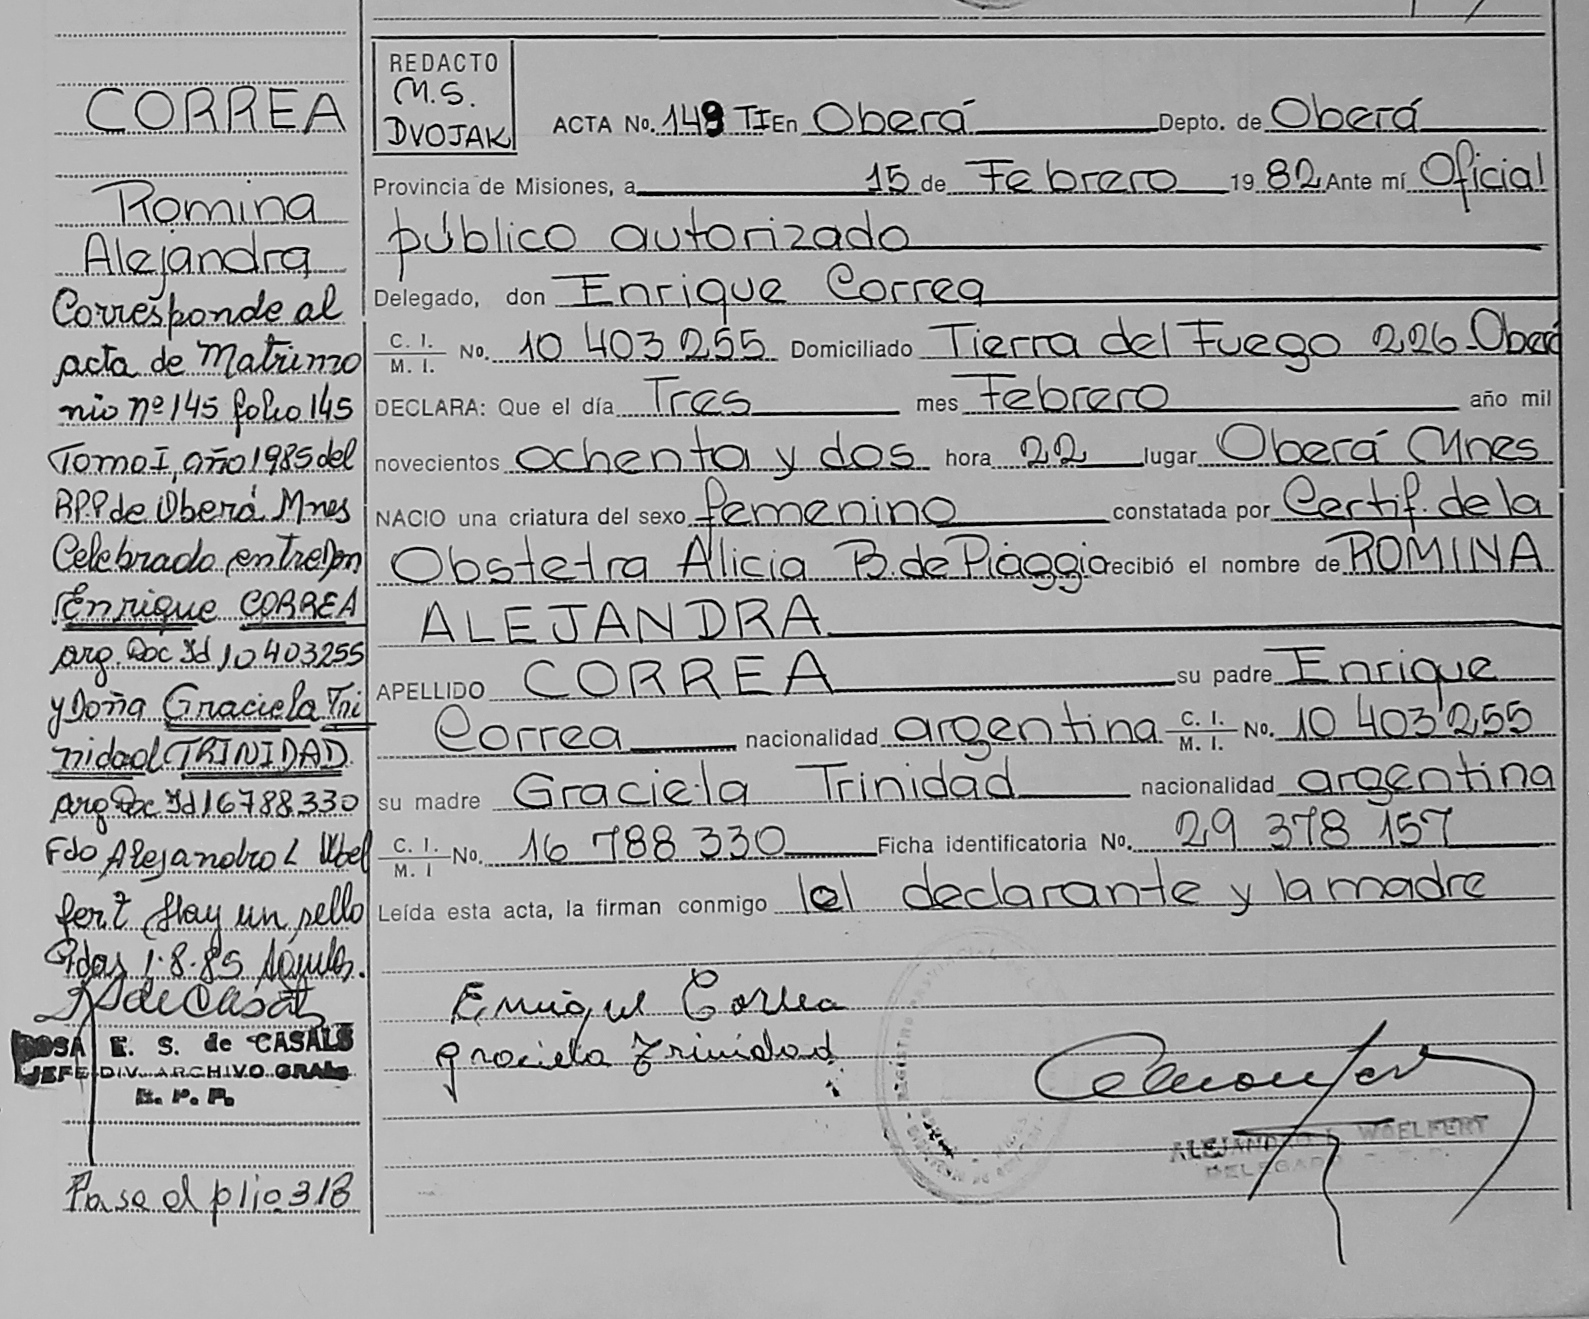 CORREA
Romina
Alejandra
Corresponde al
acta de Matrimo
nio nº 145 folio 145
Tomo I, año 1985 del
RPP de Oberá Mnes
Celebrado entre Don
Enrique CORREA
arg. Doc Id 10403255
y Doña Graciela Tri
nidad TRINIDAD
arg Doc Id 16788330
Fdo Alejandro L Woel
fert Hay un sello
Pdas 1·8·85
ROSA E. S. de CASALS
JEFE DIV. ARCHIVO GRAL
R. P. P.
Pase al plio 318
REDACTO
M.S.
DVOJAK
ACTA No. 149 TI En Oberá Depto. de Oberá
Provincia de Misiones, a 15 de Febrero 1982 Ante mí Oficial
público autorizado
Delegado, don Enrique Correa
C. I. / M. I. No. 10 403 255 Domiciliado Tierra del Fuego 226 - Oberá
DECLARA: Que el día Tres mes Febrero año mil
novecientos ochenta y dos hora 22 lugar Oberá Mnes
NACIO una criatura del sexo femenino constatada por Certif. de la
Obstetra Alicia B. de Piaggio recibió el nombre de ROMINA
ALEJANDRA
APELLIDO CORREA su padre Enrique
Correa nacionalidad argentina C. I. / M. I. No. 10 403 255
su madre Graciela Trinidad nacionalidad argentina
C. I. / M. I No. 16 788 330 Ficha identificatoria No. 29 378 157
Leída esta acta, la firman conmigo el declarante y la madre
Enrique Correa
Graciela Trinidad
ALEJANDRO L. WOELFERT
DELEGADO R. P. P.